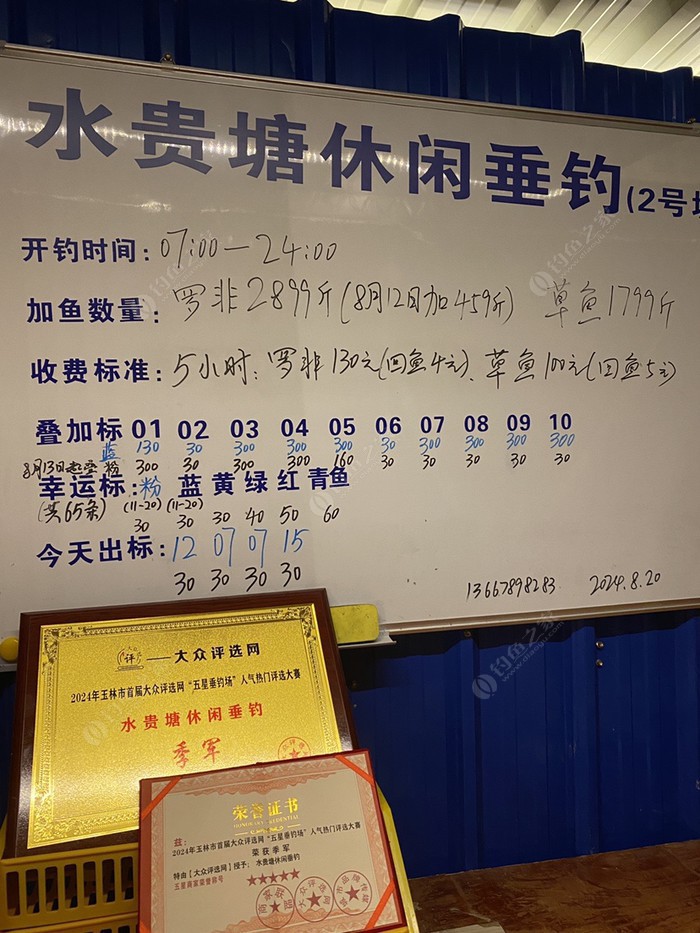 水贵塘休闲垂钓(2号
开钓时间: 07:00—24:00
加鱼数量: 罗非2899斤(8月12日加459斤) 草鱼1799斤
收费标准: 5小时: 罗非130元(回鱼4元)、草鱼100元(回鱼5元)
叠加标 01 02 03 04 05 06 07 08 09 10
蓝 130 30 300 300 300 30 300 300 300 300
8月13日起 粉 300 30 300 300 160 30 30 30 30 30
幸运标: 粉 蓝 黄 绿 红 青鱼
(共65条) (11-20) (11-20) 30 40 50 60
30 30
今天出标: 12 07 07 15
30 30 30 30
13667898283 2024.8.20
大众评选网
2024年玉林市首届大众评选网“五星垂钓场”人气热门评选大赛
水贵塘休闲垂钓
季军
荣誉证书
兹:
2024年玉林市首届大众评选网“五星垂钓场”人气热门评选大赛
荣获季军
特由【大众评选网】授予: 水贵塘休闲垂钓
五星商家荣誉称号
★★★★★
钓鱼之家